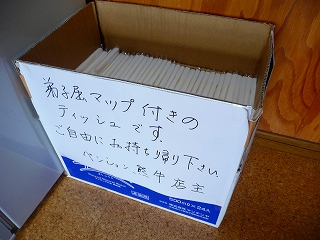 弟子屈マップ付きの
ティッシュです。
ご自由にお持ち帰り下さい
ペンション熊牛 店主
500ml×24入